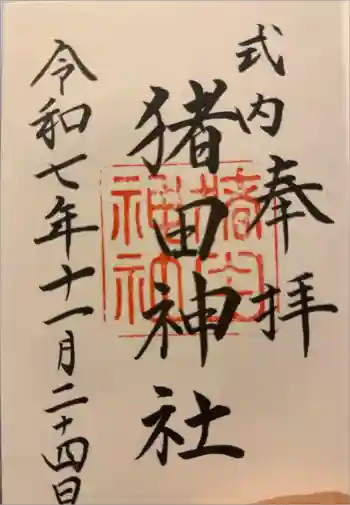 式内
奉拝
猪田神社
令和七年十一月二十四日